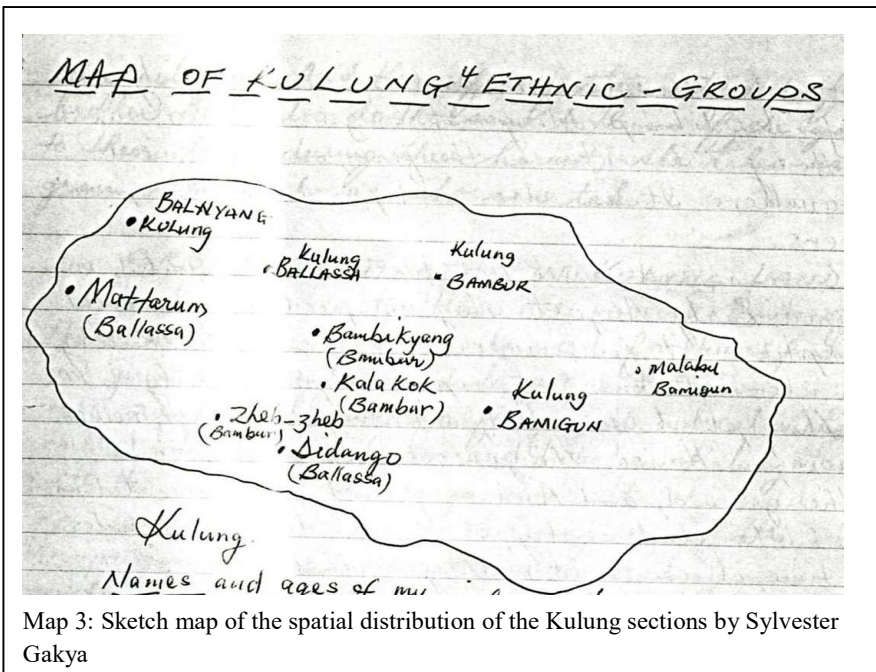 MAP OF KULUNG 4 ETHNIC-GROUPS
BALNYANG
Kulung
Kulung
BALLASSA
Kulung
BAMBUR
Mattarum
(Ballassa)
Bambikyang
(Bambur)
Kala Kok
(Bambur)
Malabu
Bamigun
Kulung
BAMIGUN
Zheb-zheb
(Bambur)
Didango
(Ballassa)
Kulung
Names and ages of my
Map 3: Sketch map of the spatial distribution of the Kulung sections by Sylvester
Gakya